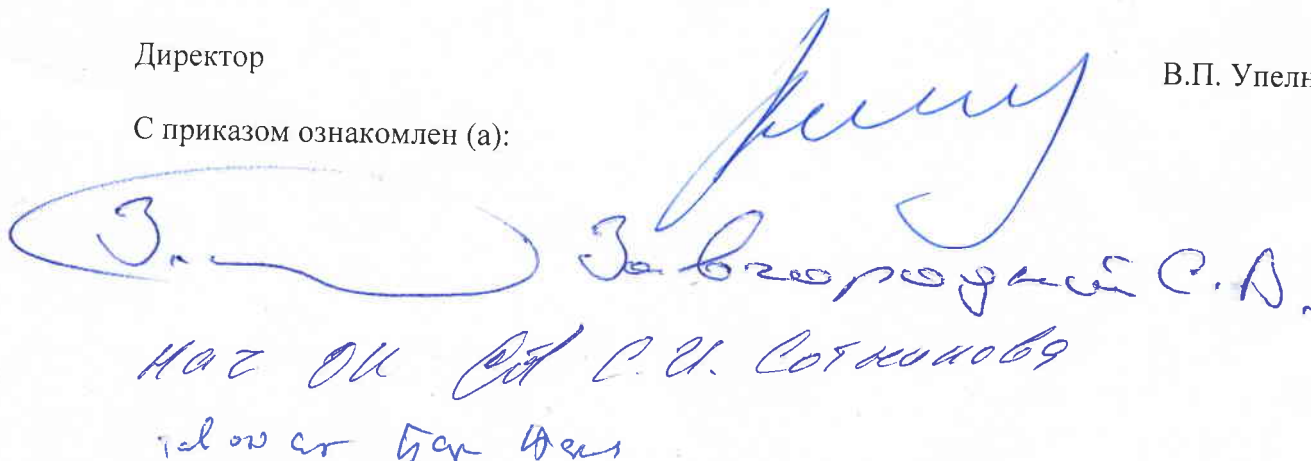 Директор В.П. Упелн
С приказом ознакомлен (а):
Завгородний С.А.
Нач ОК С.И. Сотникова